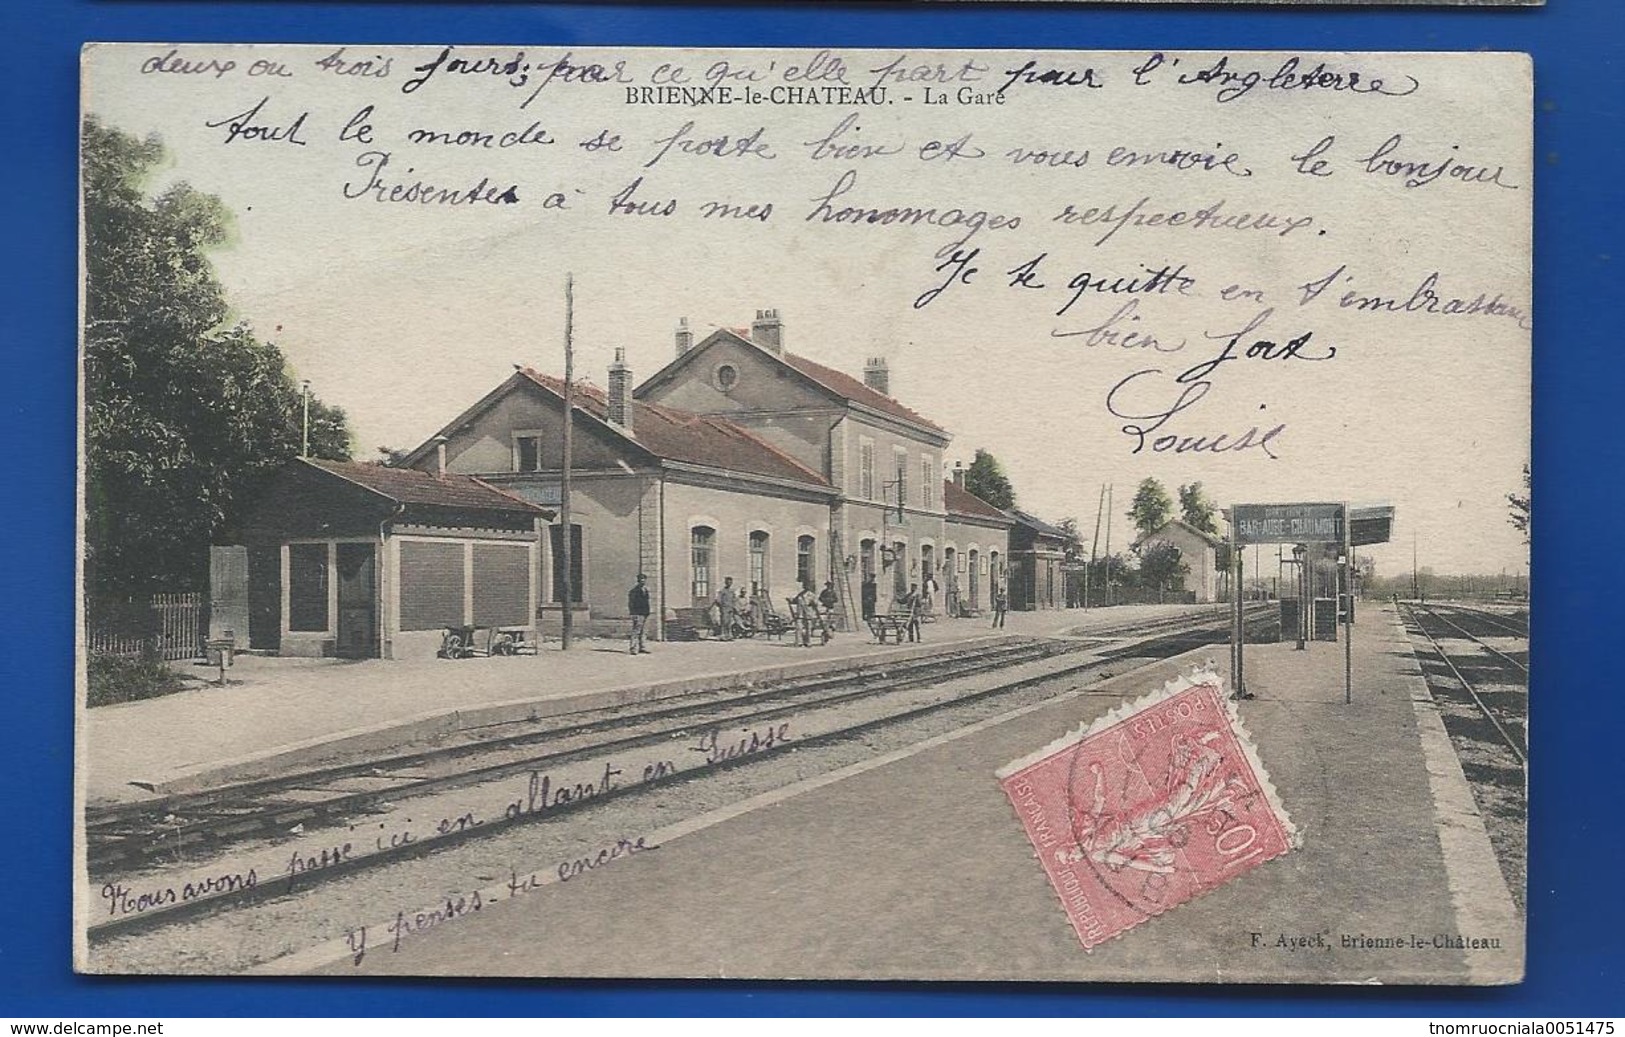 deux ou trois jours; par ce qu'elle part pour l'Angleterre
BRIENNE-le-CHATEAU. - La Gare
tout le monde se porte bien et vous envoie le bonjour
Présente à tous mes honomages respectueux.
Je te quitte en t'embrassant
bien fort
Louise
BAR-AUBE-CHAUMONT
Nous avons passé ici en allant en Suisse
y penses-tu encore
POSTES
10
REPUBLIQUE FRANÇAISE
F. Ayeck, Brienne-le-Château
www.delcampe.net
tnomruocniala0051475